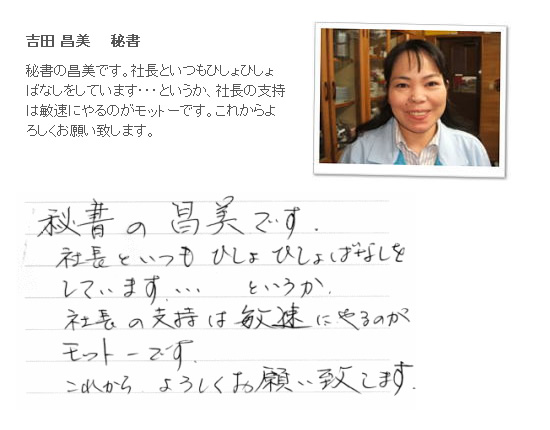 吉田 昌美　秘書
秘書の昌美です。社長といつもひしょひしょ
ばなしをしています・・・というか、社長の支持
は敏速にやるのがモットーです。これからよ
ろしくお願い致します。
秘書の昌美です.
社長といつも ひしょひしょばなしを
しています... というか.
社長の支持は敏速にやるのが
モットーです.
これから よろしくお願い致します.